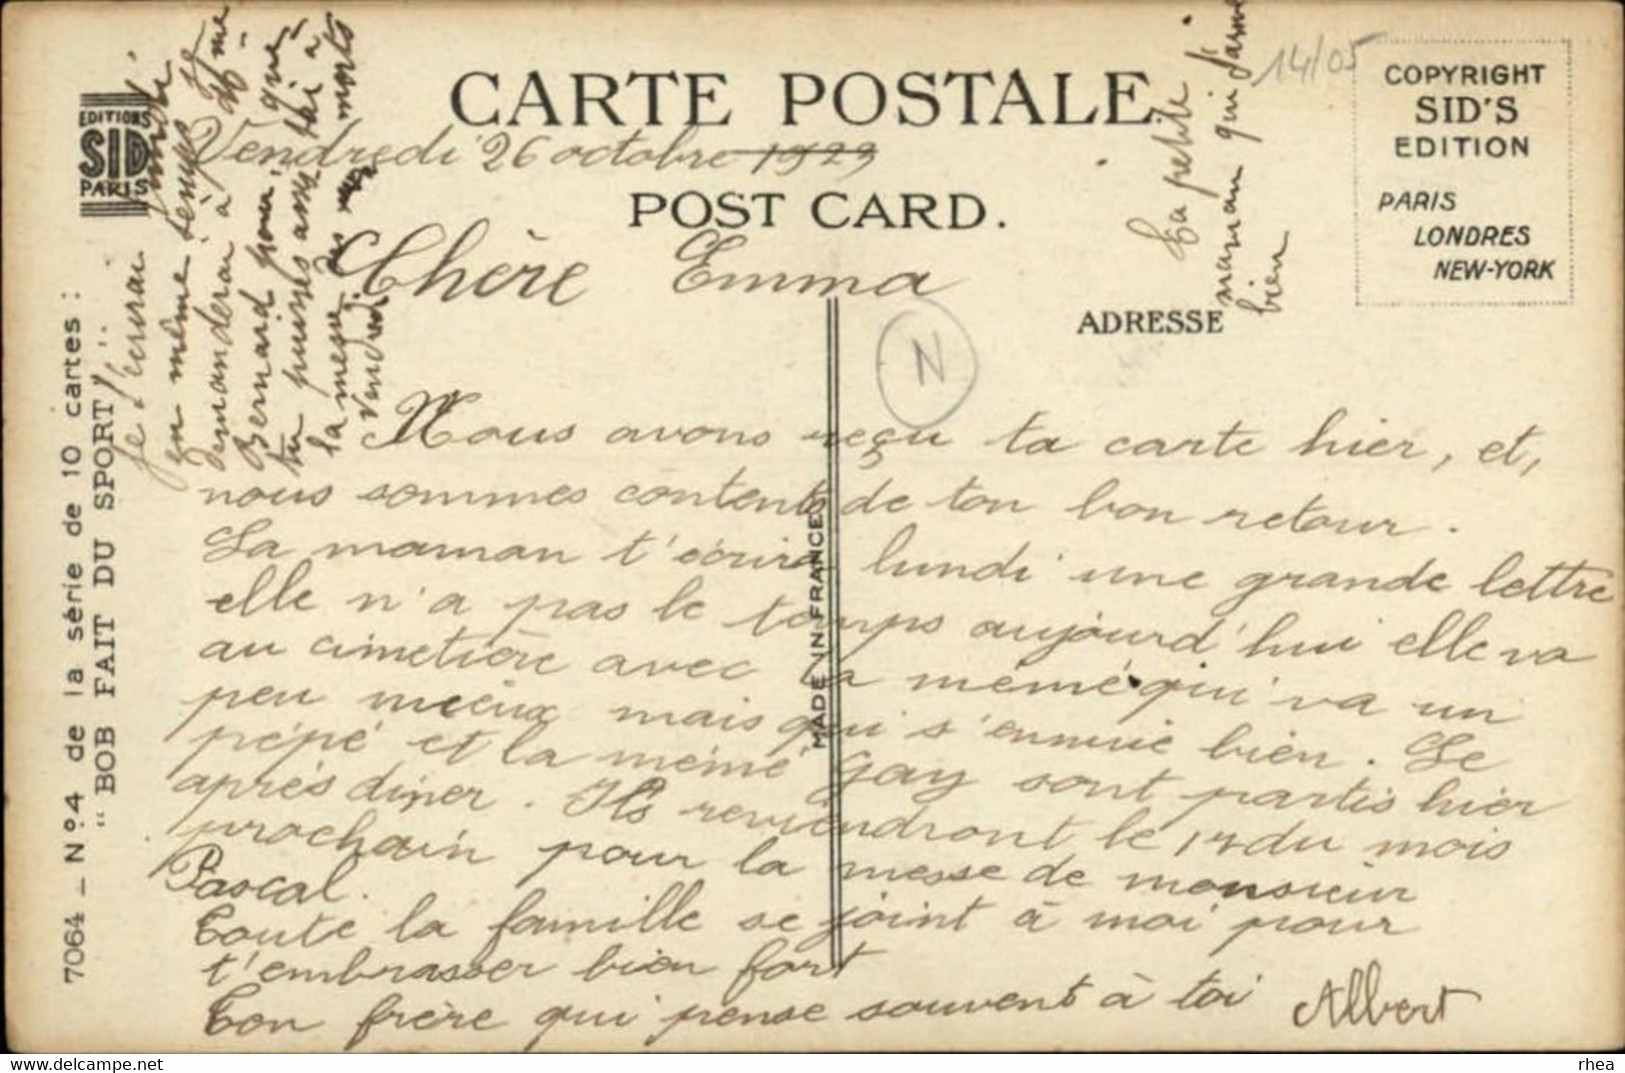 CARTE POSTALE
POST CARD.
ADRESSE
14/05
COPYRIGHT
SID'S
EDITION
PARIS
LONDRES
NEW-YORK
EDITIONS
SID
PARIS
7064 _ N°.4 de la série de 10 cartes :
“ BOB FAIT DU SPORT ”.
MADE IN FRANCE
N
Vendredi 26 octobre 1923
Chère Emma
Nous avons reçu ta carte hier, et,
nous sommes contents de ton bon retour.
La maman t'écrira lundi une grande lettre
elle n'a pas le temps aujourd'hui elle va
au cimetière avec la mémé qui va un
peu mieux mais qui s'ennuie bien. Le
pépé et la mémé Gay sont partis hier
après diner. Ils reviendront le 17 du mois
prochain pour la messe de monsieur
Pascal.
Toute la famille se joint à moi pour
t'embrasser bien fort
Ton frère qui pense souvent à toi Albert
je t'écrirai lundi
en même temps je
demanderai à Mme
Bernard pour que
tu puisses assister à
la messe des morts
vendredi.
Ta petite
maman qui t'aime
bien
delcampe.net
rhea